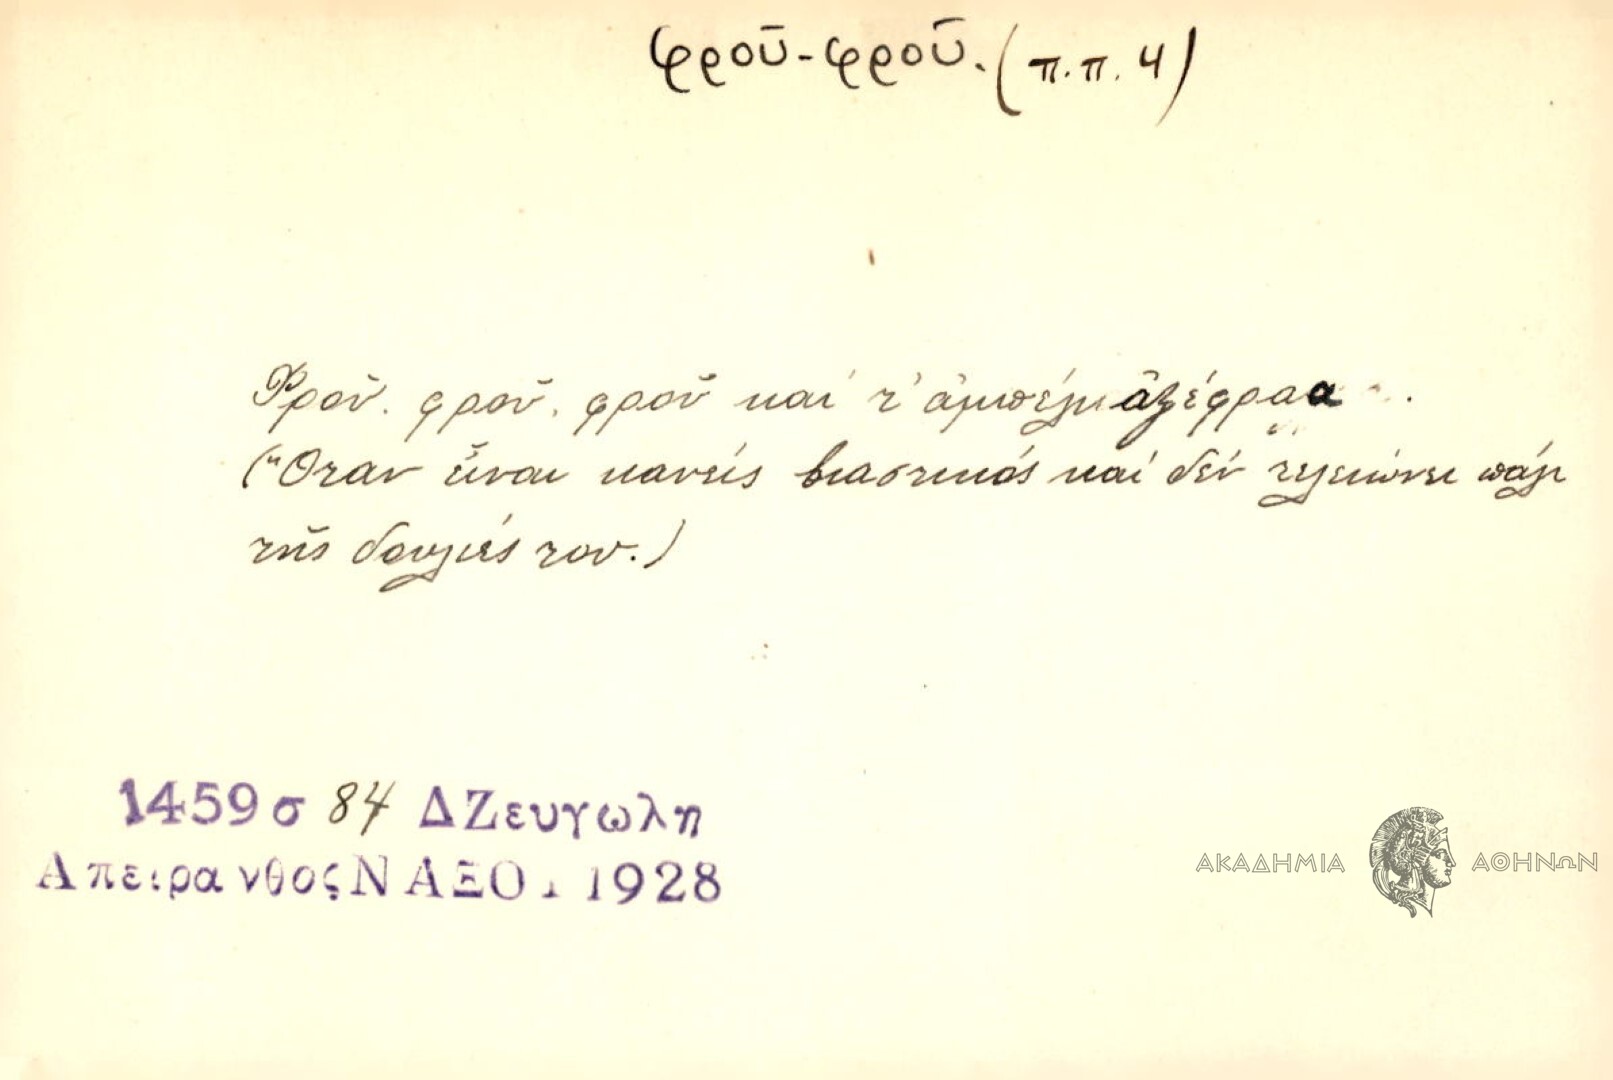 φροῦ-φροῦ. (π.π. 4)
Φροῦ. φροῦ. φροῦ καί τ' ἀμπέλι ἀξέφραα.
(Ὅταν εἶναι κανείς βιαστικός καί δέν τελειώνει πάλι
τῆς δουλιές του.)
1459 σ 84 Δ Ζευγωλη
Απειρανθος ΝΑΞΟ. 1928
ΑΚΑΔΗΜΙΑ ΑΘΗΝΩΝ